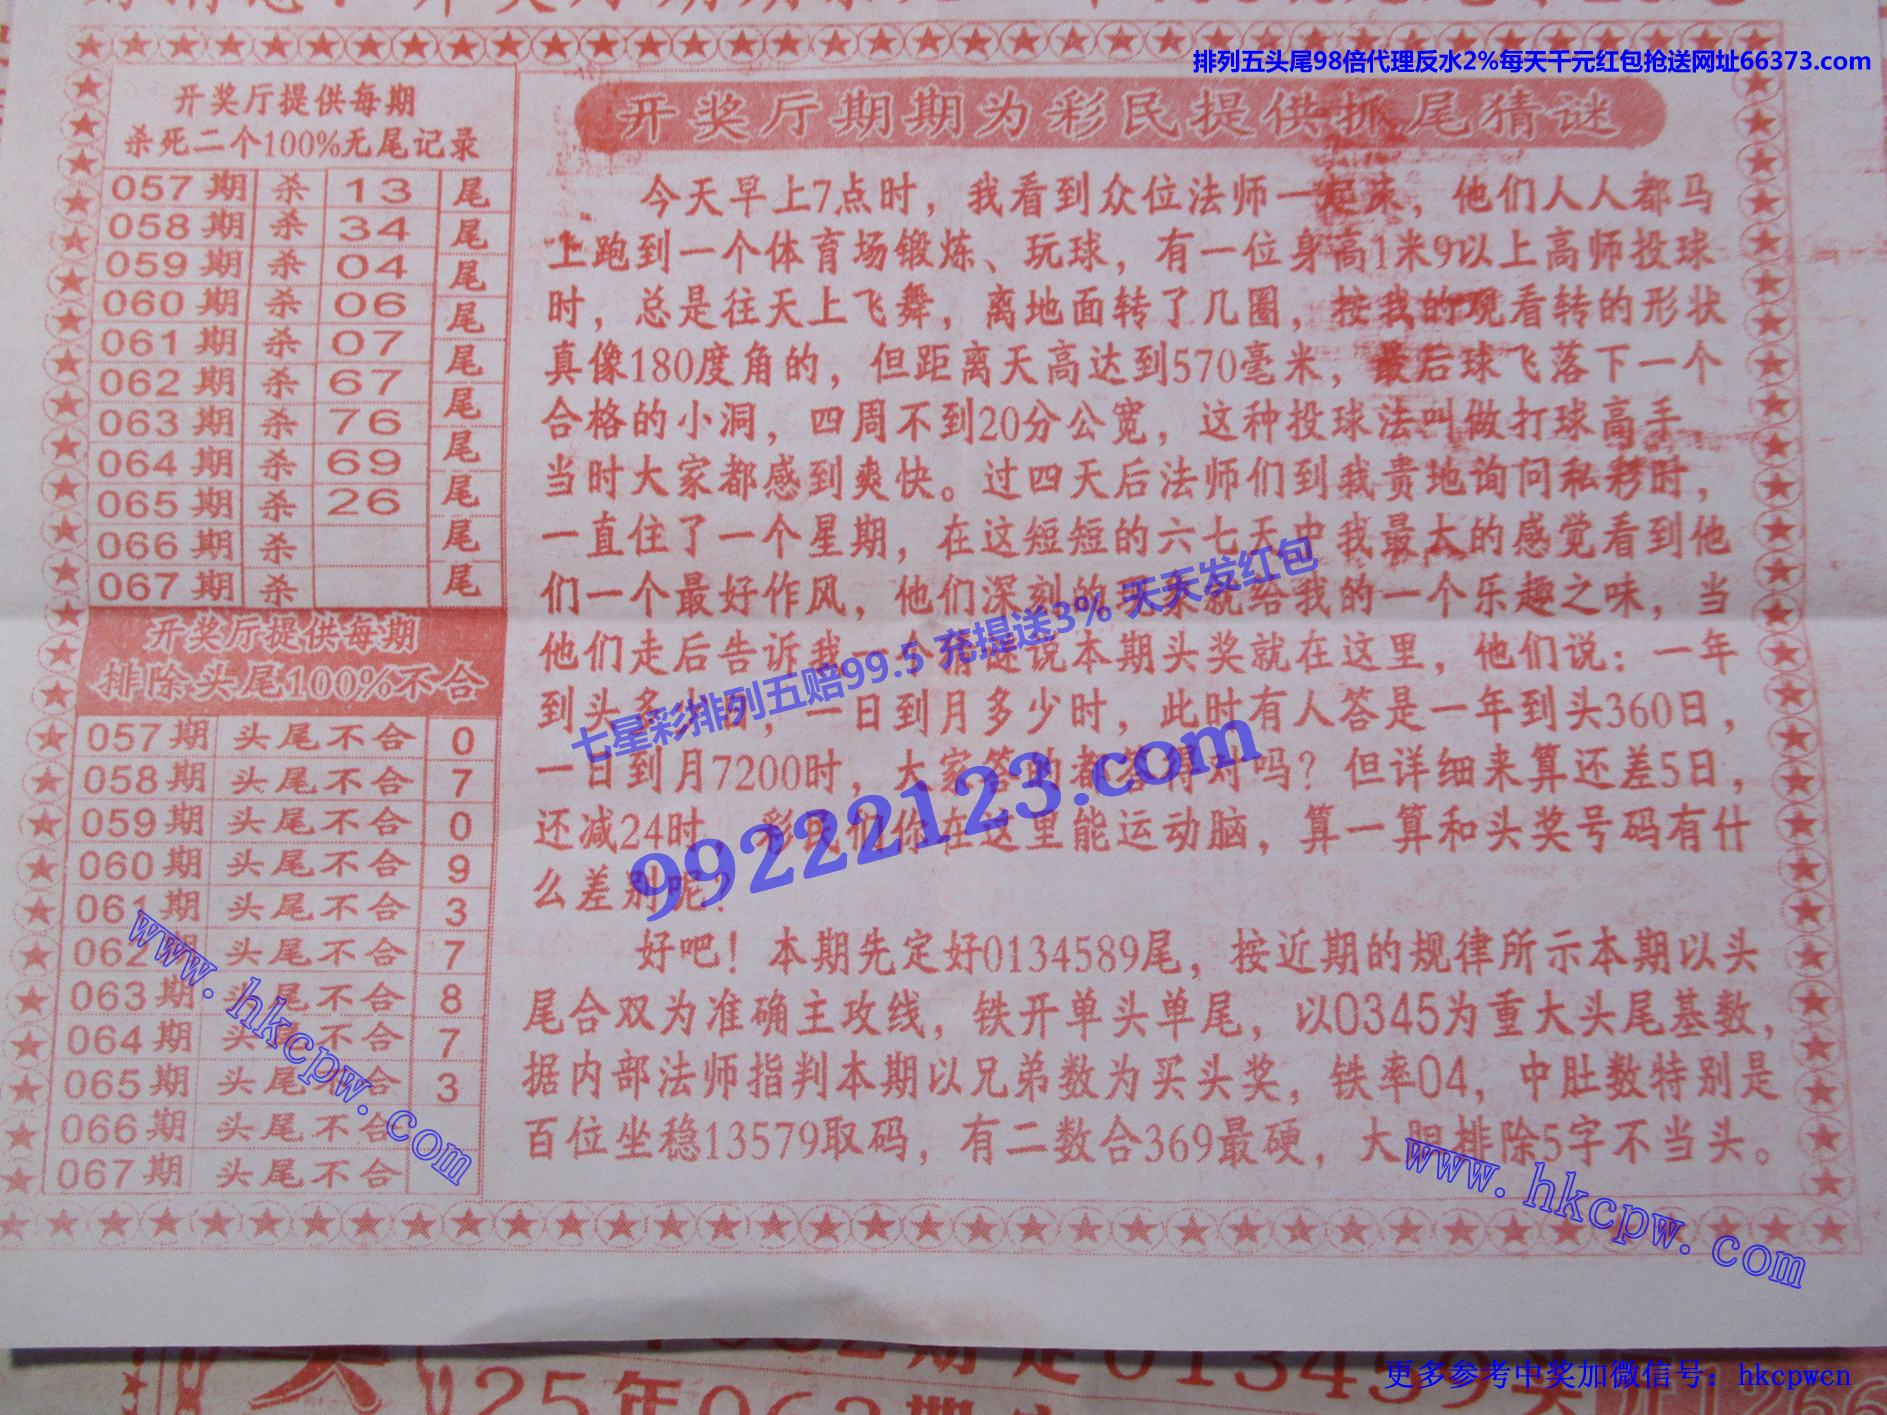 排列五头尾98倍代理反水2%每天千元红包抢送网址66373.com
开奖厅提供每期
杀死二个100%无尾记录
057期 杀 13 尾
058期 杀 34 尾
059期 杀 04 尾
060期 杀 06 尾
061期 杀 07 尾
062期 杀 67 尾
063期 杀 76 尾
064期 杀 69 尾
065期 杀 26 尾
066期 杀 尾
067期 杀 尾
开奖厅提供每期
排除头尾100%不合
057期 头尾不合 0
058期 头尾不合 7
059期 头尾不合 0
060期 头尾不合 9
061期 头尾不合 3
062期 头尾不合 7
063期 头尾不合 8
064期 头尾不合 7
065期 头尾不合 3
066期 头尾不合
067期 头尾不合
开奖厅期期为彩民提供抓尾猜谜
今天早上7点时，我看到众位法师一起床，他们人人都马
上跑到一个体育场锻炼、玩球，有一位身高1米9以上高师投球
时，总是往天上飞舞，离地面转了几圈，按我的观看转的形状
真像180度角的，但距离天高达到570毫米，最后球飞落下一个
合格的小洞，四周不到20分公宽，这种投球法叫做打球高手，
当时大家都感到爽快。过四天后法师们到我贵地询问私彩时，
一直住了一个星期，在这短短的六七天中我最大的感觉看到他
们一个最好作风，他们深刻的 就给我的一个乐趣之味，当
他们走后告诉我一个 说本期头奖就在这里，他们说：一年
到头多少 ，一日到月多少时，此时有人答是一年到头360日，
一日到月7200时，大家答的都 得对吗？但详细来算还差5日，
还减24时，彩民们你在这里能运动脑，算一算和头奖号码有什
么差别呢？
好吧！本期先定好0134589尾，按近期的规律所示本期以头
尾合双为准确主攻线，铁开单头单尾，以0345为重大头尾基数，
据内部法师指判本期以兄弟数为买头奖，铁率04，中肚数特别是
百位坐稳13579取码，有二数合369最硬，大胆排除5字不当头。
七星彩排列五赔99.5 充提送3% 天天发红包
99222123.com
www.hkcpw.com
www.hkcpw.com
更多参考中奖加微信号：hkcpwcn